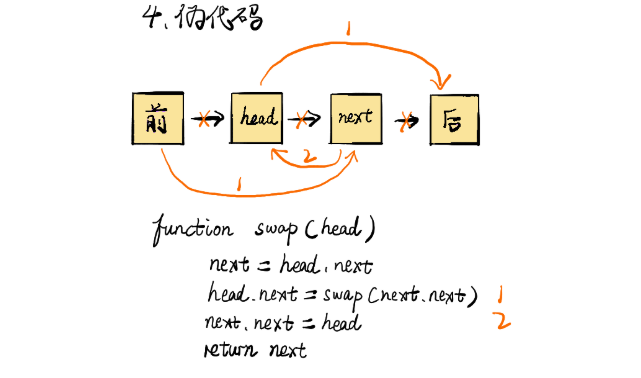 4、伪代码
1
前 head next 后
2
1
function swap(head)
next = head.next
head.next = swap(next.next) 1
next.next = head 2
return next